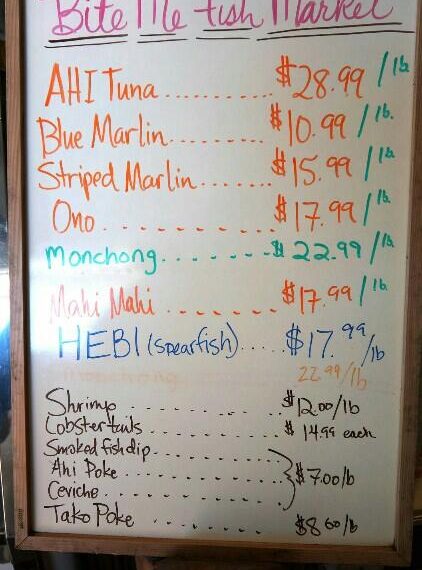 Bite Me Fish Market
AHI Tuna .......... $28.99/lb
Blue Marlin ......... $10.99/lb.
Striped Marlin ....... $15.99/lb
Ono ........... $17.99/lb.
Monchong ....... $22.99/lb.
Mahi Mahi ....... $17.99/lb
HEBI (spearfish) .... $17.99/lb
monchong 22.99/lb
Shrimp .......... $12.00/lb
Lobster tails ......... $14.99 each
Smoked fish dip .......
Ahi Poke ......... } $7.00/lb
Ceviche ..........
Tako Poke ....... $8.60/lb